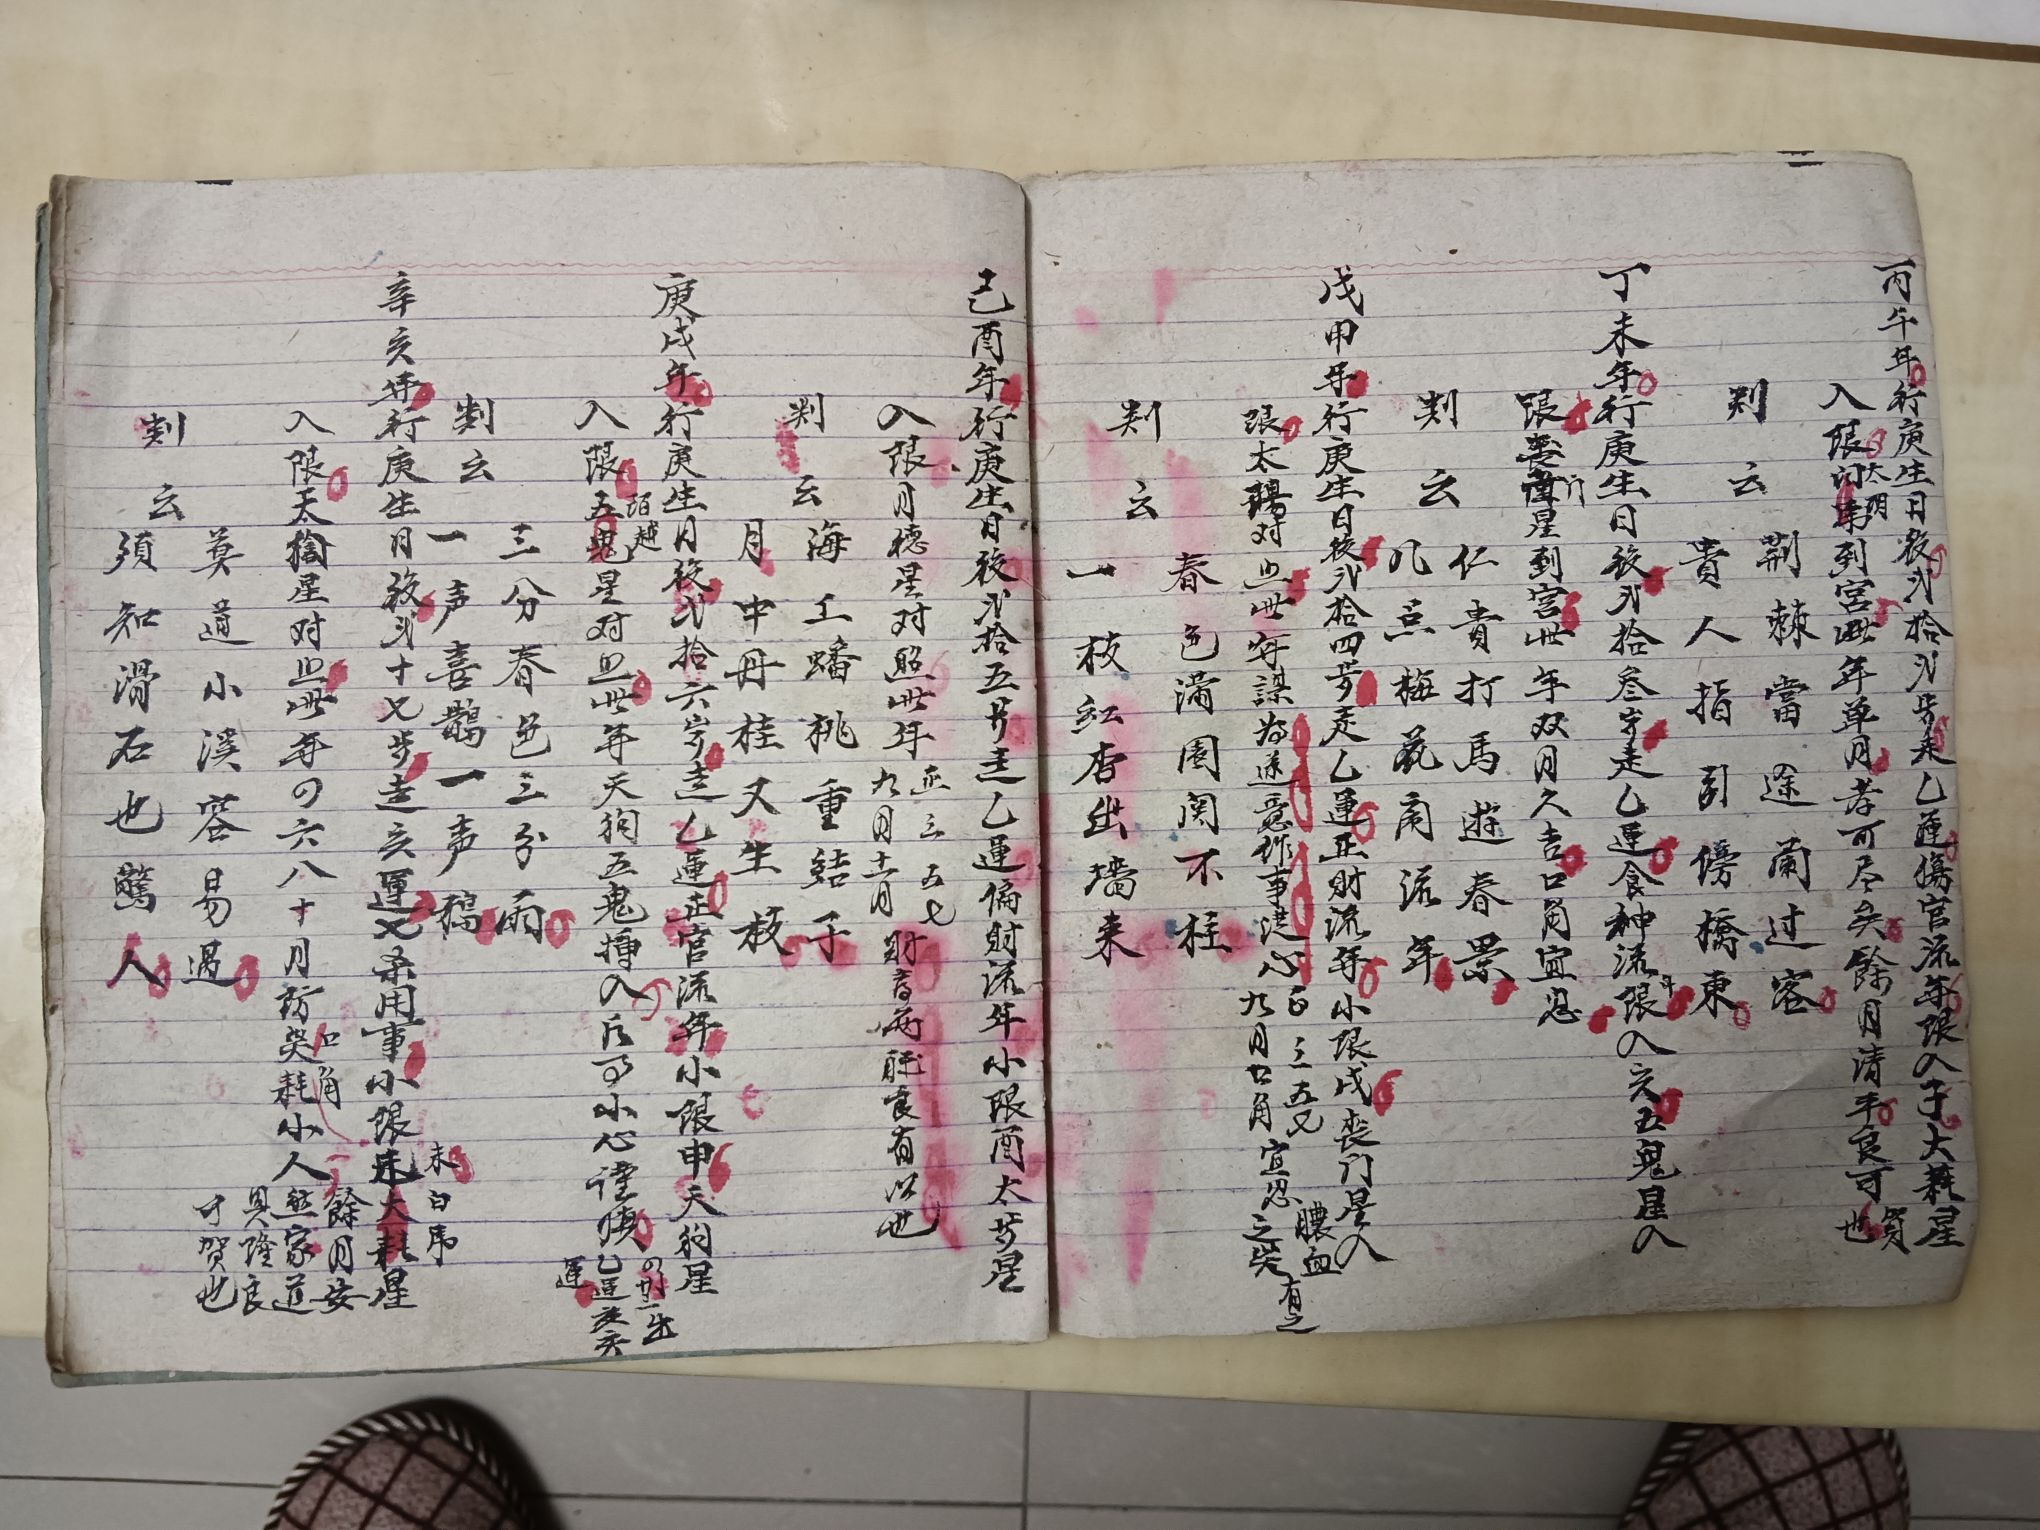 丙午年行庚生日後弍拾弍步走乙運傷官流年限入子大耗星
入限太陰到宮此年单月孝可尽矣餘月清平良可賀也
判云
荆棘當途蘭过客
貴人指引傍橋東
丁未年行庚生日後弍拾叁岁走乙運食神流年限入亥五鬼星入
限喪门星到宮此年双月欠吉口角宜忍
判云
仁貴打馬遊春景
几点梅花闹流年
戊申年行庚生日後弍拾四步走乙運正财流年小限戌喪门星入
限太陽对照此年謀為遂意作事洪心正三五七九月口角宜忍之 膿血有之
判云
春色满園関不柱
一枝紅杏出墙来
己酉年行庚生日後弍拾五步走乙運偏财流年小限酉太岁星
入限月德星对照此年正三五七九月十一月财喜兩旺良有以也
判云
海上蟠桃重結子
月中丹桂又生枝
庚戌年行庚生月後弍拾六岁走乙運正官流年小限申天狗星
入限五鬼星对照此年天狗五鬼挿入小心謹慎
判云
三分春色三分雨
一声喜鵲一声鴉
辛亥年行庚生月後弍十七步走亥運七杀用事小限未大耗星 未白虎
入限太陰星对照此年四六八十月防口角耗小人餘月安然家道興隆良可賀也
判云
莫道小溪容易過
須知滑石也驚人